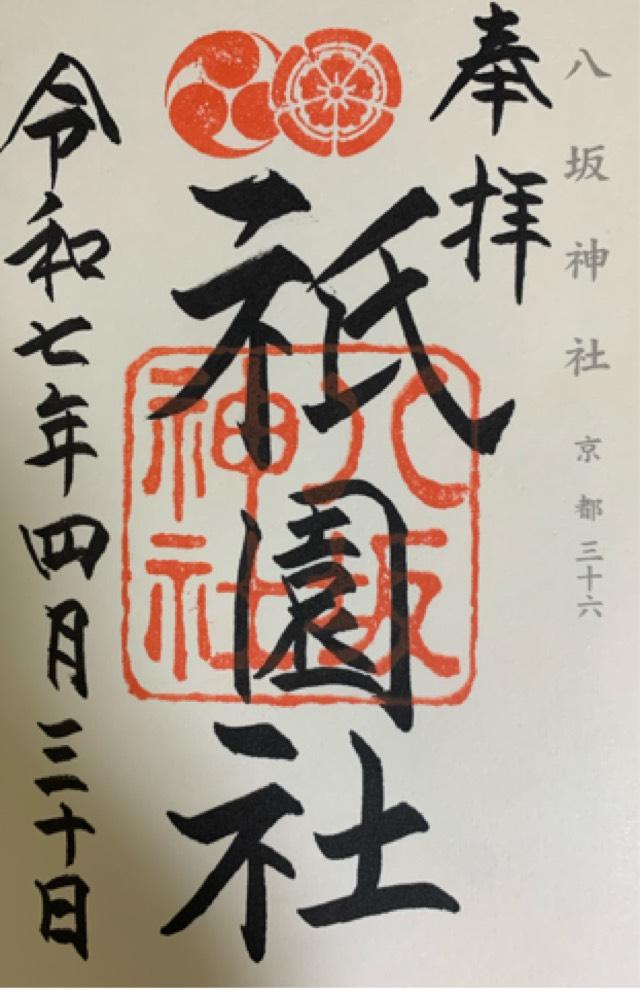 八坂神社 京都三十六
奉拝
祇園社
八坂神社
令和七年四月三十日